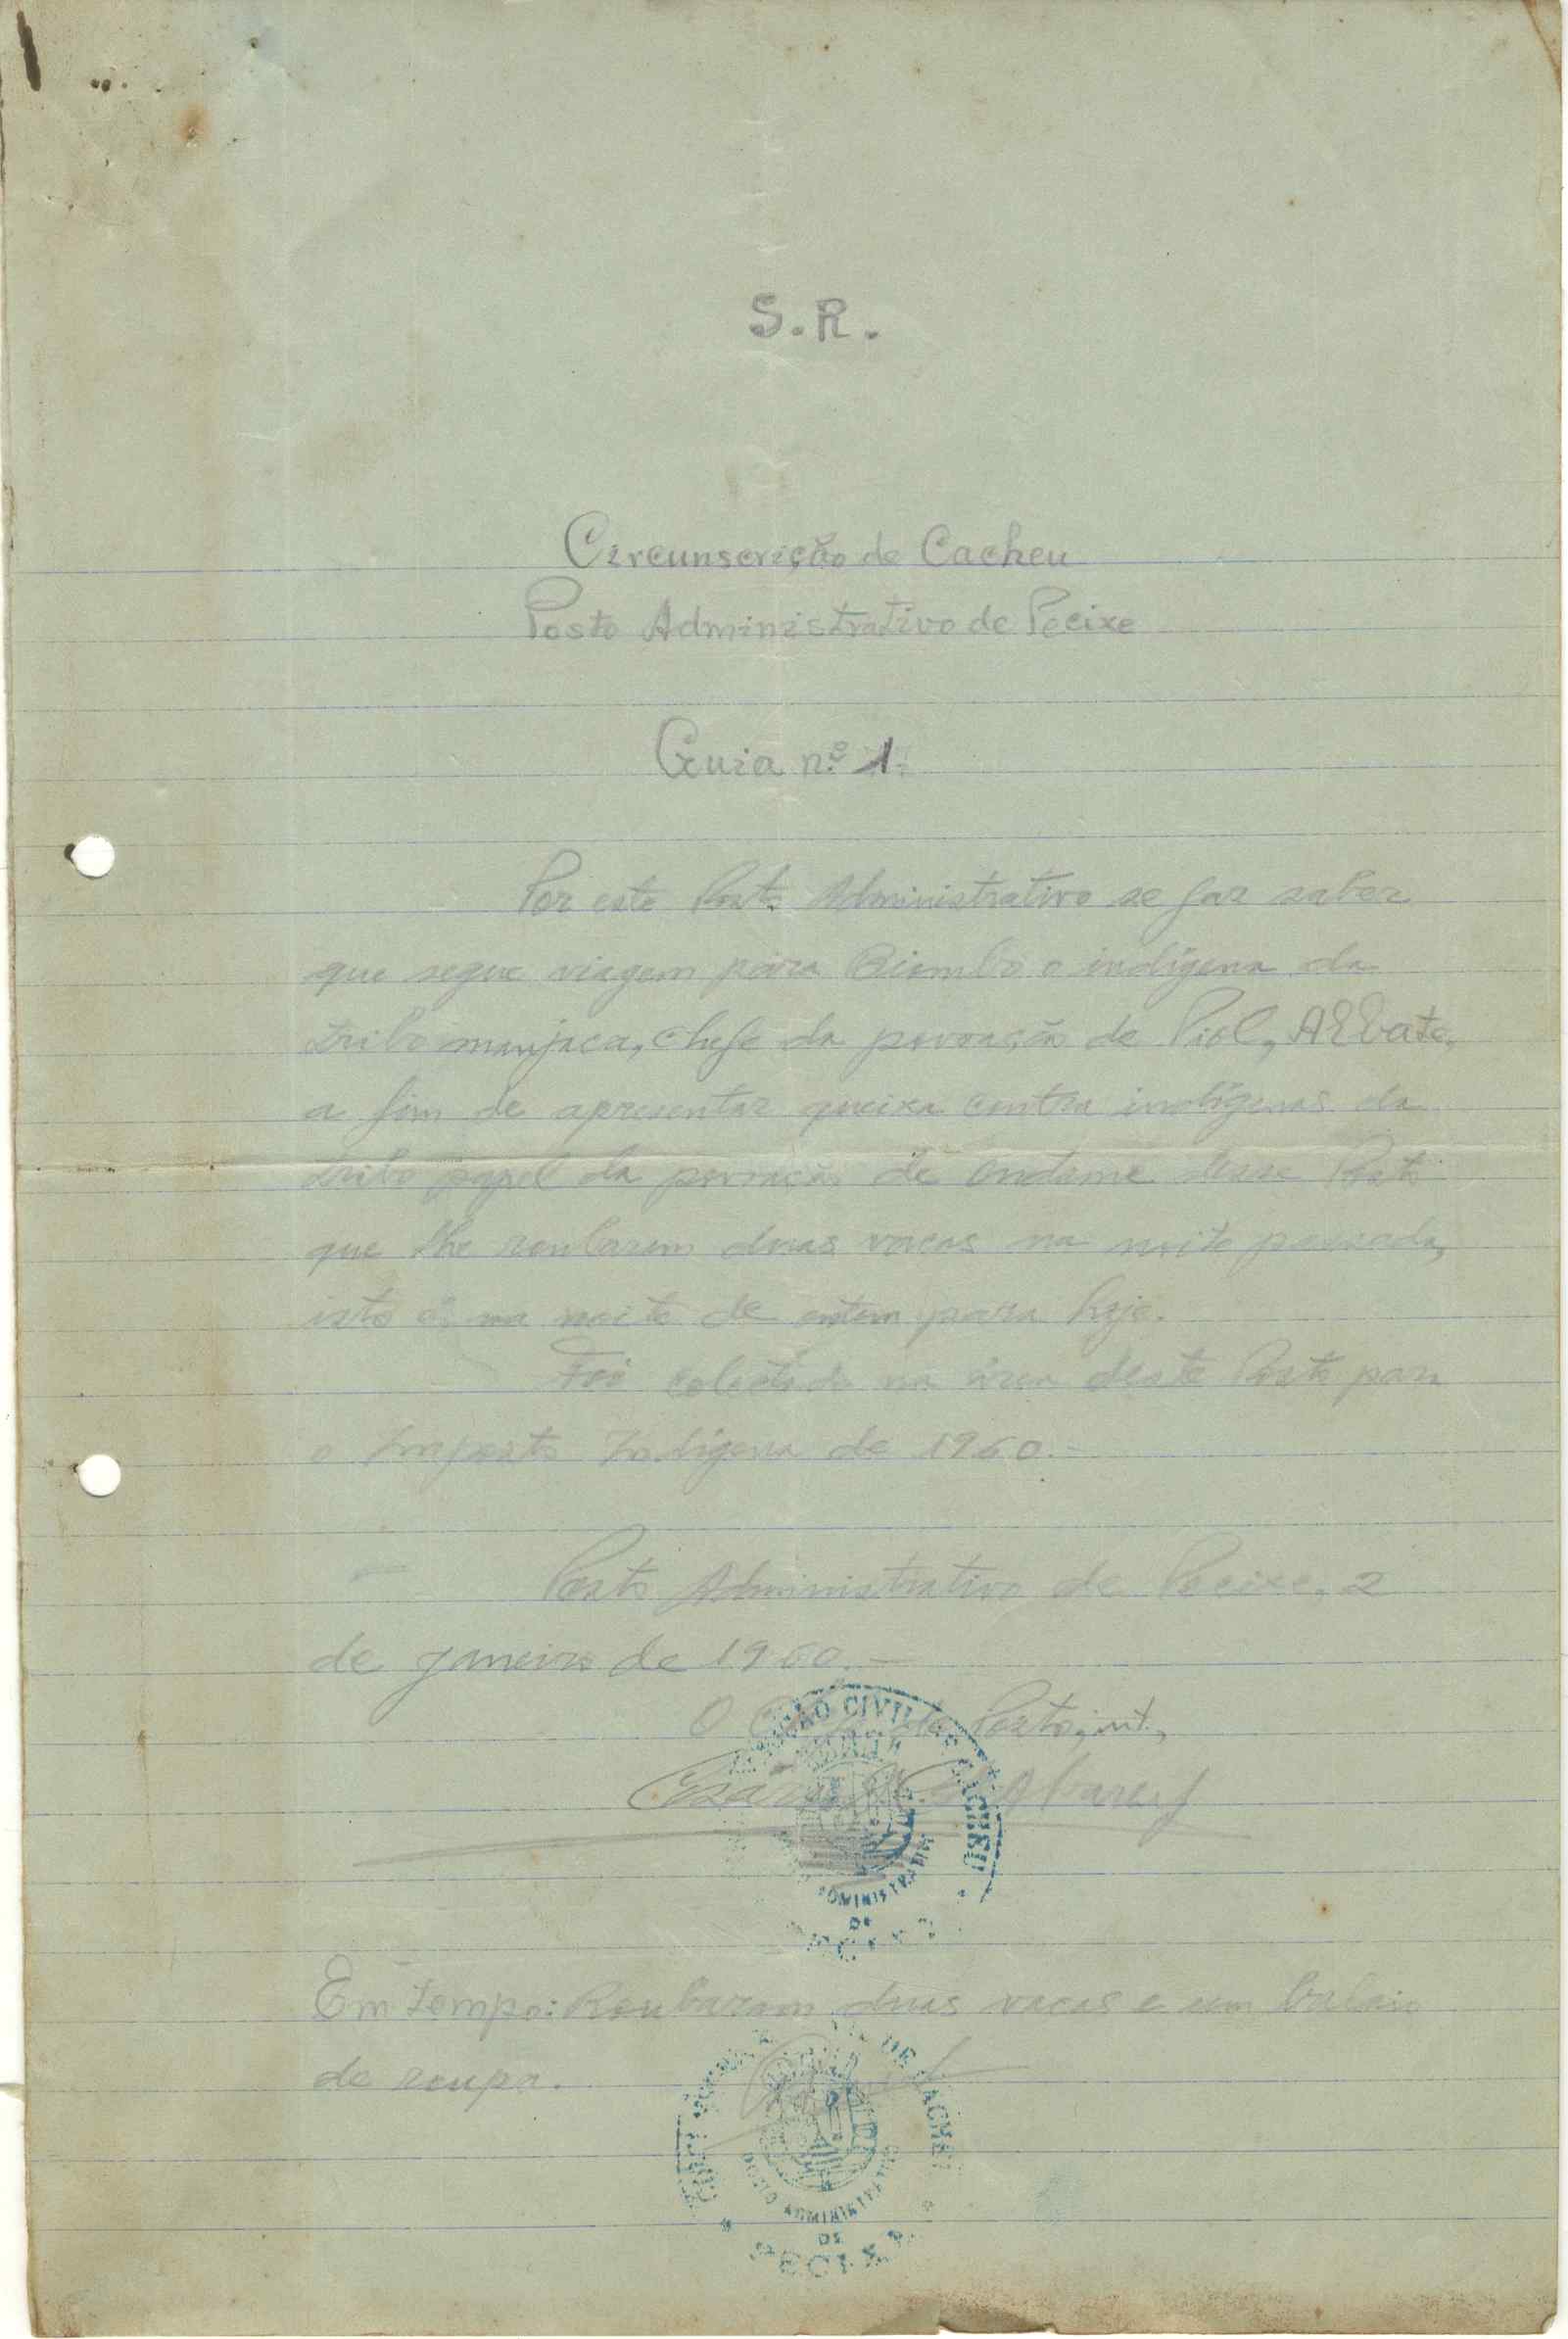 S.R.
Circunscrição de Cacheu
Posto Administrativo de Pecixe
Guia n.º 1
Por este Posto Administrativo se faz saber
que segue viagem para Biombo o indígena da
tribo manjaca, chefe da povoação de Piol,
a fim de apresentar queixa contra indígenas da
tribo papel da povoação de Ondame desse Posto
que lhe roubaram duas vacas na noite passada,
isto é, na noite de ontem para hoje.
Foi colectado na área deste Posto para
o Imposto Indígena de 1960.-
Posto Administrativo de Pecixe, 2
de janeiro de 1960.-
O do Posto, int.,
CIVIL DE CACHEU
ADMINISTRATIVO
DE
Em tempo: Roubaram duas vacas e um balaio
de roupa.
DE CACHEU
POSTO ADMINISTRATIVO
DE
PECIXE